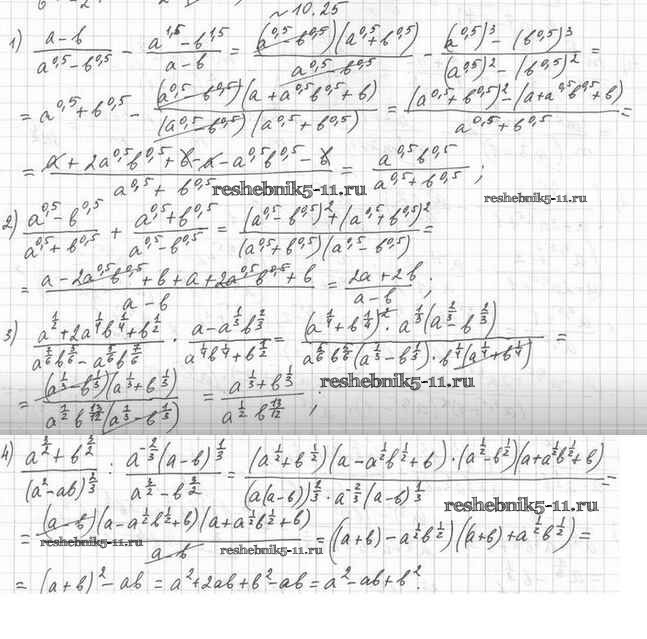 ~ 10.25
1) (a-b)/(a^0,5-b^0,5) - (a^1,5-b^1,5)/(a-b) = ((a^0,5-b^0,5)(a^0,5+b^0,5))/(a^0,5-b^0,5) - ((a^0,5)^3-(b^0,5)^3)/((a^0,5)^2-(b^0,5)^2) =
= a^0,5+b^0,5 - ((a^0,5-b^0,5)(a+a^0,5b^0,5+b))/((a^0,5-b^0,5)(a^0,5+b^0,5)) = ((a^0,5+b^0,5)^2-(a+a^0,5b^0,5+b))/(a^0,5+b^0,5) =
= (a+2a^0,5b^0,5+b-a-a^0,5b^0,5-b)/(a^0,5+b^0,5) = (a^0,5b^0,5)/(a^0,5+b^0,5);
reshebnik5-11.ru
reshebnik5-11.ru
2) (a^0,5-b^0,5)/(a^0,5+b^0,5) + (a^0,5+b^0,5)/(a^0,5-b^0,5) = ((a^0,5-b^0,5)^2+(a^0,5+b^0,5)^2)/((a^0,5+b^0,5)(a^0,5-b^0,5)) =
= (a-2a^0,5b^0,5+b+a+2a^0,5b^0,5+b)/(a-b) = (2a+2b)/(a-b);
reshebnik5-11.ru
= ((a^1/3-b^1/3)(a^1/3+b^1/3))/(a^1/2b^13/12(a^1/3-b^1/3)) = (a^1/3+b^1/3)/(a^1/2b^13/12);
reshebnik5-11.ru
4) (a^3/2+b^3/2)/((a^2-ab)^2/3) : (a^-2/3(a-b)^1/3)/(a^3/2-b^3/2) = ((a^1/2+b^1/2)(a-a^1/2b^1/2+b)·(a^1/2-b^1/2)(a+a^1/2b^1/2+b))/((a(a-b))^2/3·a^-2/3(a-b)^1/3) =
reshebnik5-11.ru
= ((a-b)(a-a^1/2b^1/2+b)(a+a^1/2b^1/2+b))/(a-b) = ((a+b)-a^1/2b^1/2)((a+b)+a^1/2b^1/2) =
reshebnik5-11.ru
reshebnik5-11.ru
= (a+b)^2-ab = a^2+2ab+b^2-ab = a^2-ab+b^2.